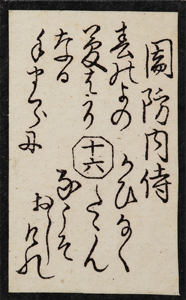 周防内侍
春のよの
夢はかり
なる
手まくらに
十六
かひなく
たゝん
なこそ
おしけれ